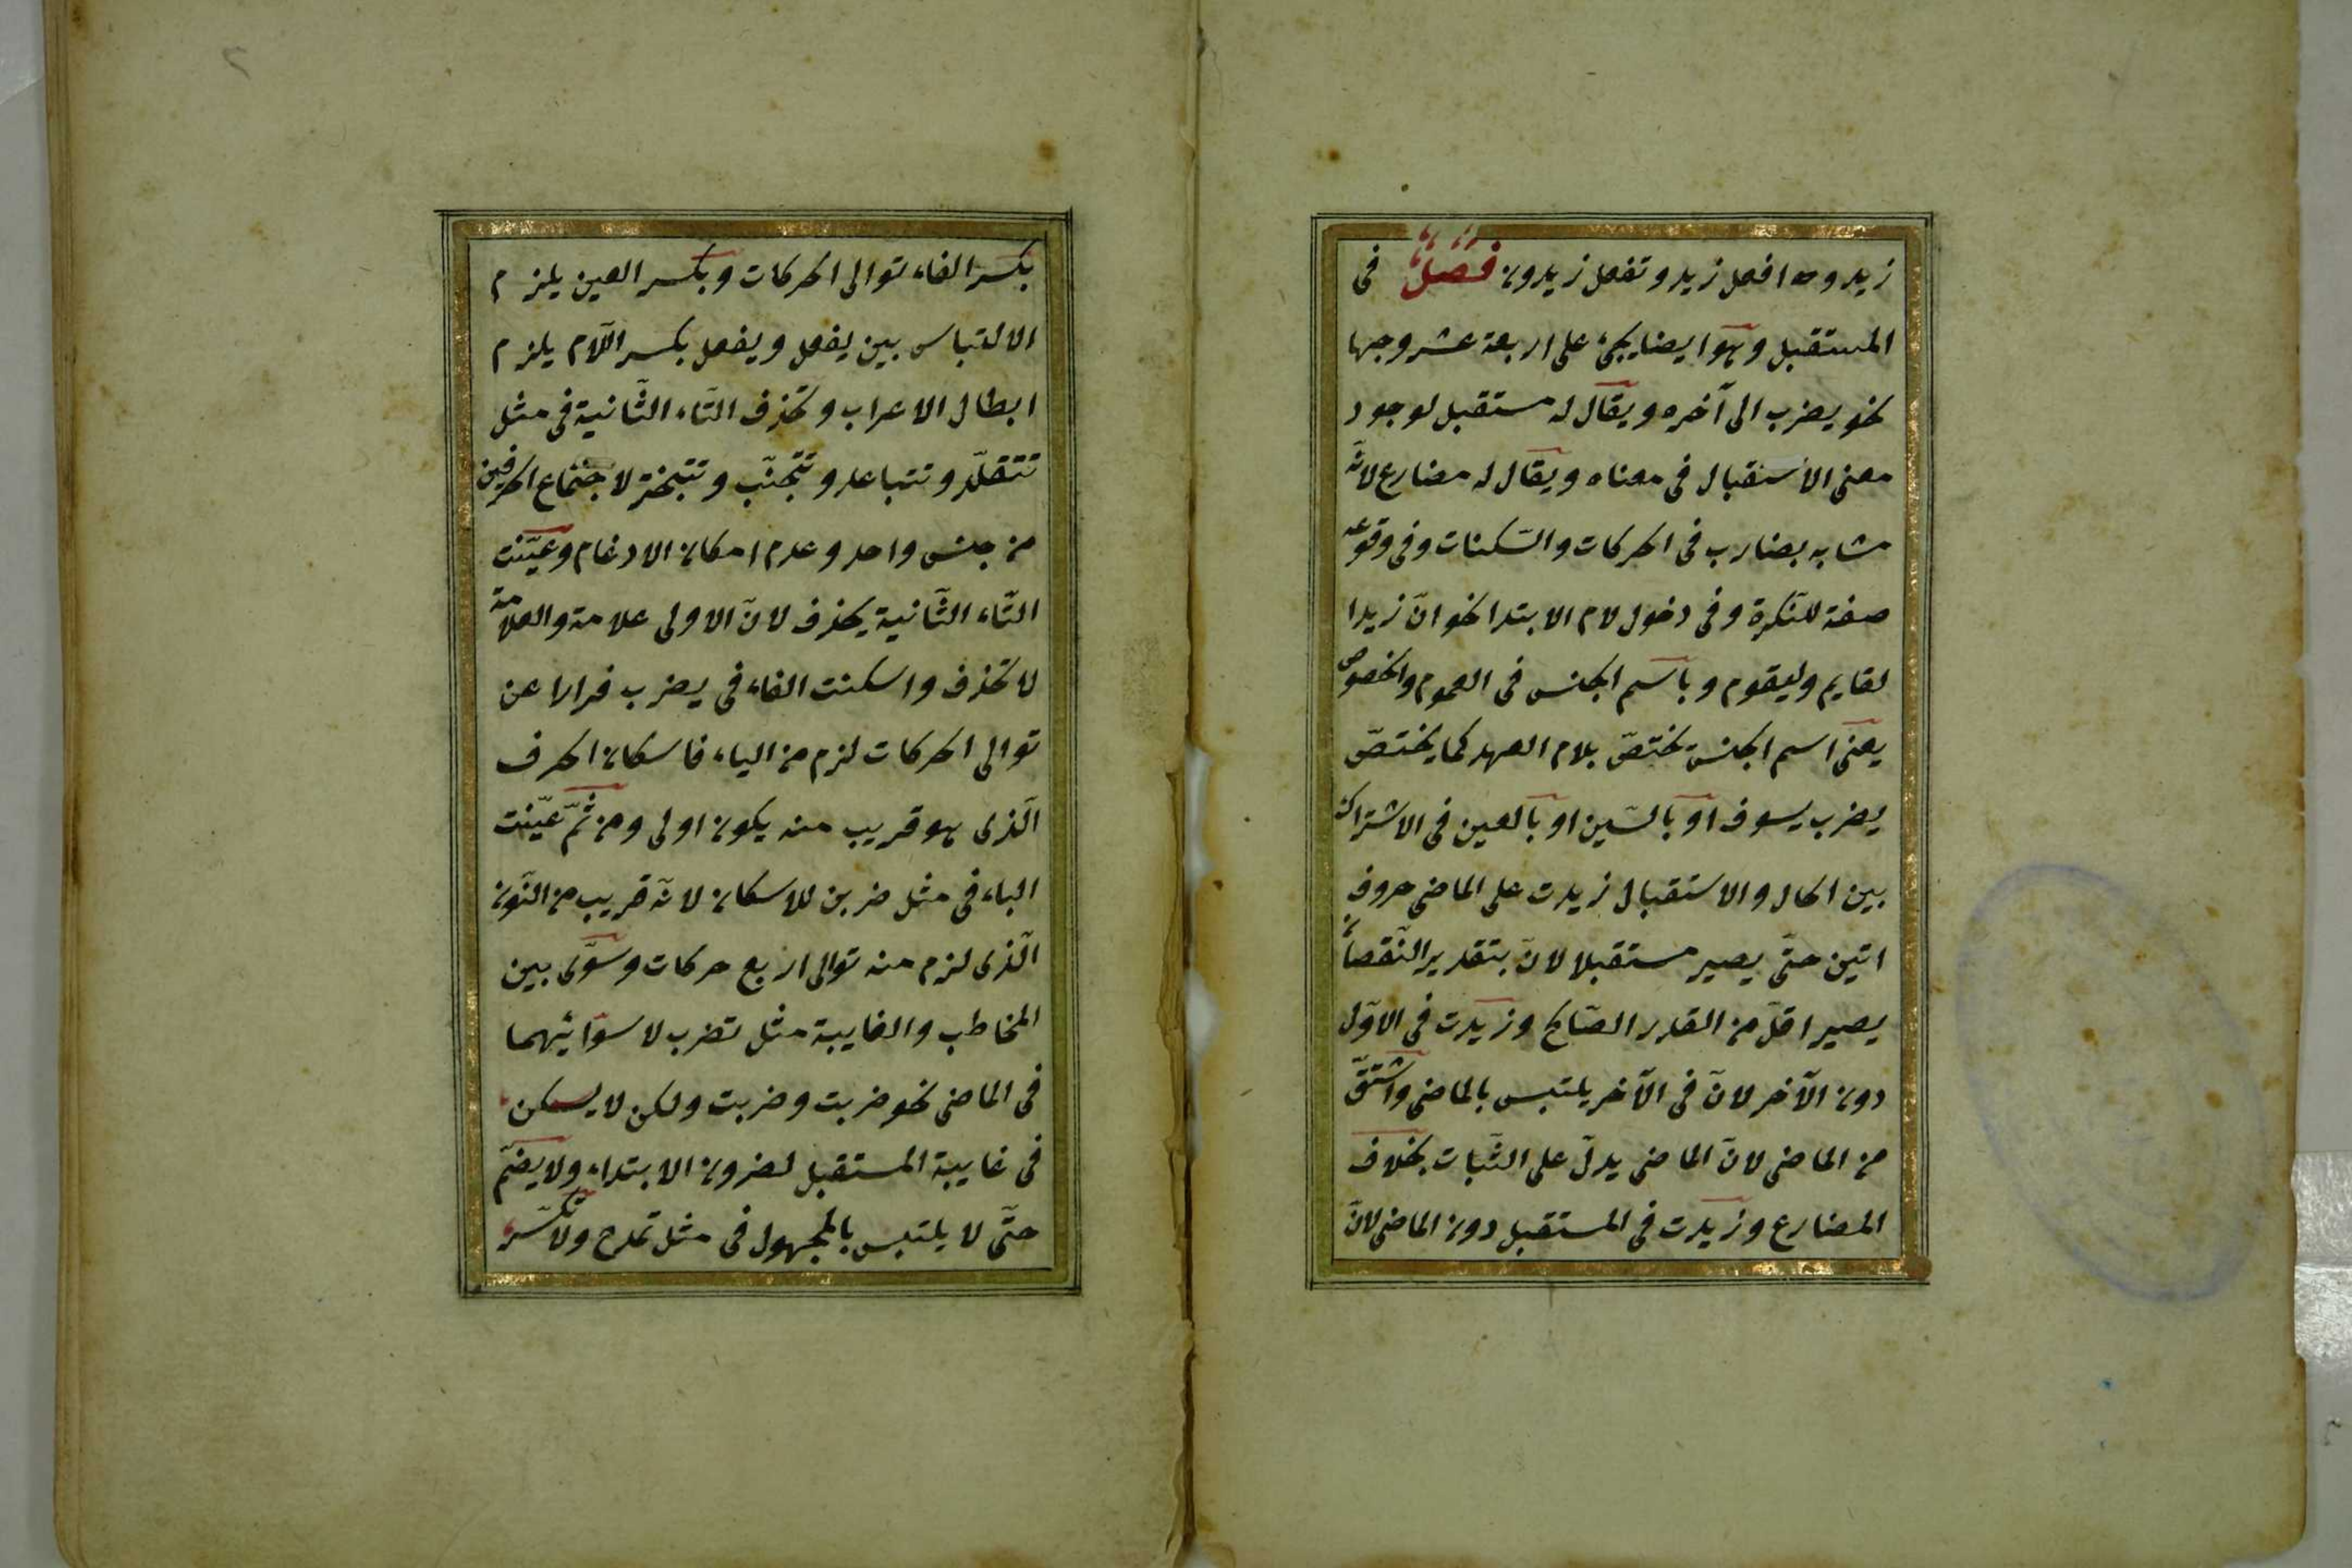 زيد وما افعل زيد وتفعل زيدون فصل فى
المستقبل وهو ايضا يجئ على اربعة عشر وجها
نحو يضرب الى آخره ويقال له مستقبل لوجود
معنى الاستقبال فى معناه ويقال له مضارع لانّه
مشابه بضارب فى الحركات والسّكنات وفى وقوعه
صفة للنّكرة وفى دخول لام الابتدا نحو انّ زيدا
لقايم وليقوم وباسم الجنس فى العموم والخصوص
يعنى اسم الجنس يختصّ بلام العهد كما يختصّ
يضرب بسوف او بالسّين او بالعين فى الاشتراك
بين الحال والاستقبال زيدت على الماضى حروف
اتين حتّى يصير مستقبلا لانّ بتقدير النّقصان
يصير اقلّ من القدر الصّالح وزيدت فى الاوّل
دون الآخر لانّ فى الآخر يلتبس بالماضى واشتقّ
من الماضى لانّ الماضى يدلّ على الثّبات بخلاف
المضارع وزيدت فى المستقبل دون الماضى لانّ
٢
بكسر الفاء توالى الحركات وبكسر العين يلزم
الالتباس بين يفعل ويفعل بكسر اللّام يلزم
ابطال الاعراب وتحذف التّاء الثّانية فى مثل
تتقلّد وتتباعد وتتجنّب وتتبختر لاجتماع الحرفين
من جنس واحد وعدم امكان الادغام وعيّنت
التّاء الثّانية يحذف لانّ الاولى علامة والعلامة
لا تحذف واسكنت الفاء فى يضرب فرارا عن
توالى الحركات لزم من الياء فاسكان الحرف
الّذى هو قريب منه يكون اولى ومن ثمّ عيّنت
الباء فى مثل ضربن للاسكان لانّه قريب من النّون
الّذى لزم منه توالى اربع حركات وسوّى بين
المخاطب والغايبة مثل تضرب لاسوائهما
فى الماضى نحو ضربت وضربت ولكن لا يسكن
فى غايبة المستقبل لضرون الابتداء ولا يضمّ
حتّى لا يلتبس بالمجهول فى مثل تمدح ولا تكسر